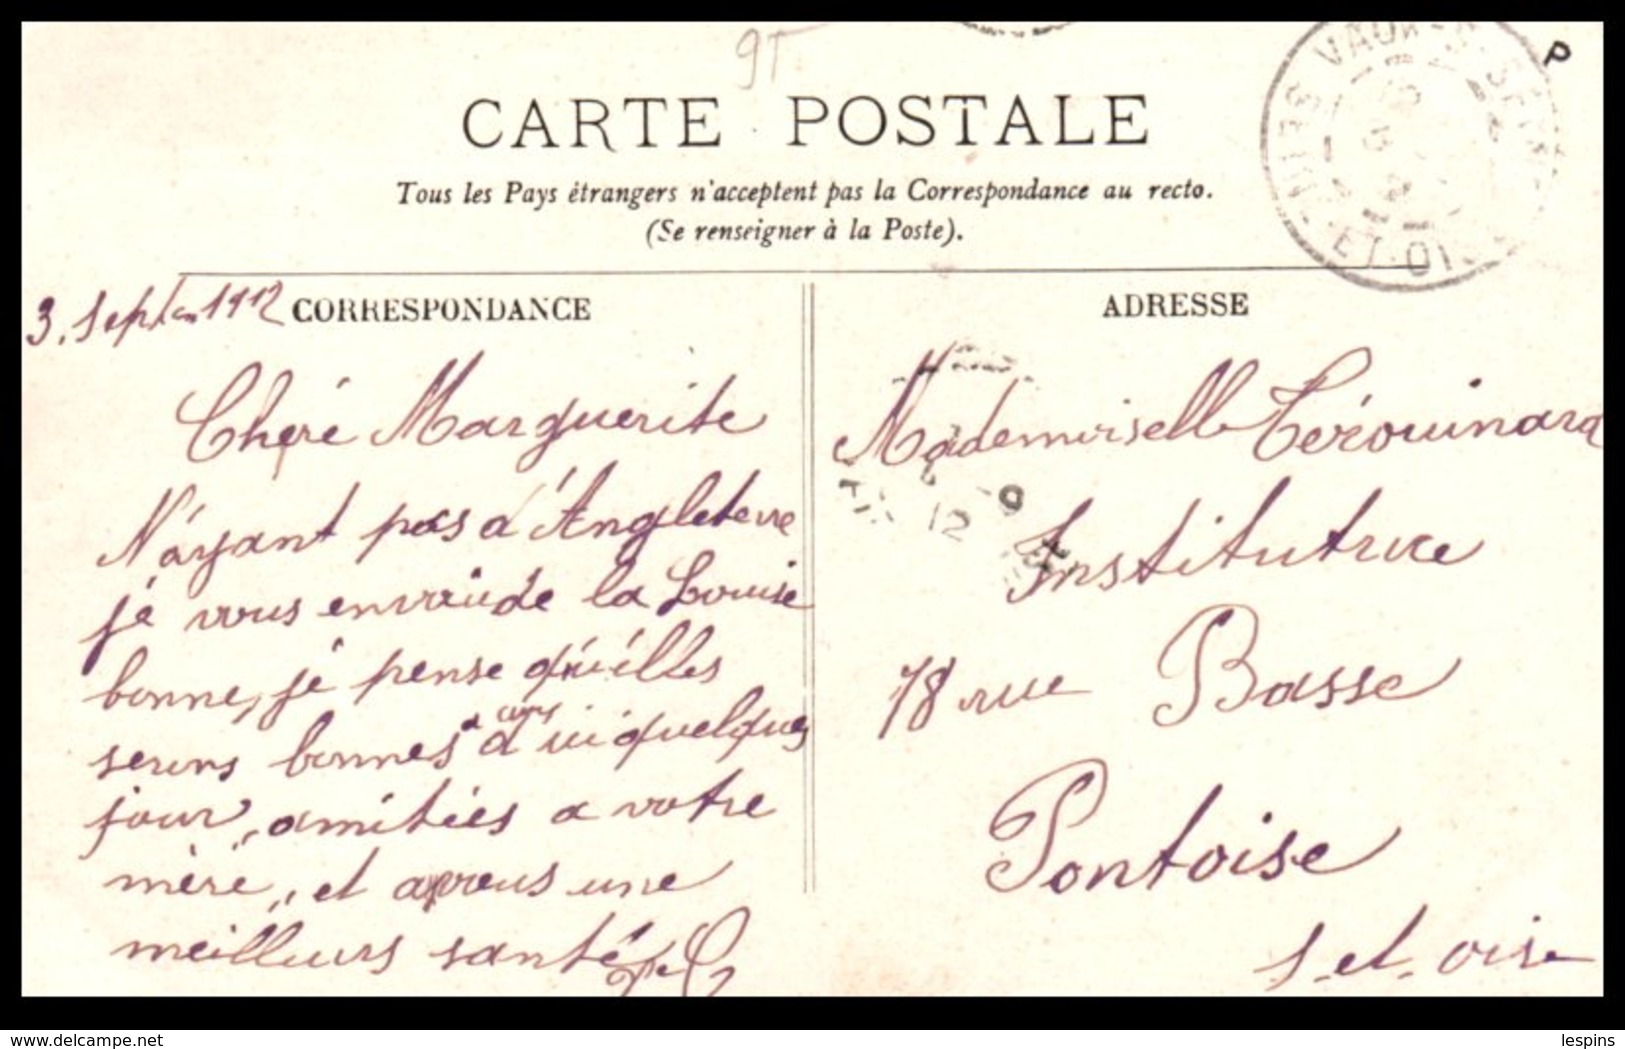 95
P
CARTE POSTALE
Tous les Pays étrangers n'acceptent pas la Correspondance au recto.
(Se renseigner à la Poste).
VAUX-S-SEINE
ET-OI
3. Septem 1912 CORRESPONDANCE
Cheré Marguerite
N'ayant pas d'Angleterre
je vous envoie de la Louise
bonne, je pense qu'illes
serons bonnes d'ici quelques
jour, amitiés a votre
mère, et a vous une
meilleurs santé
ADRESSE
Mademoiselle Térouinard
Institutrice
18 rue Basse
Pontoise
S-et-oise
12
www.delcampe.net
lespins